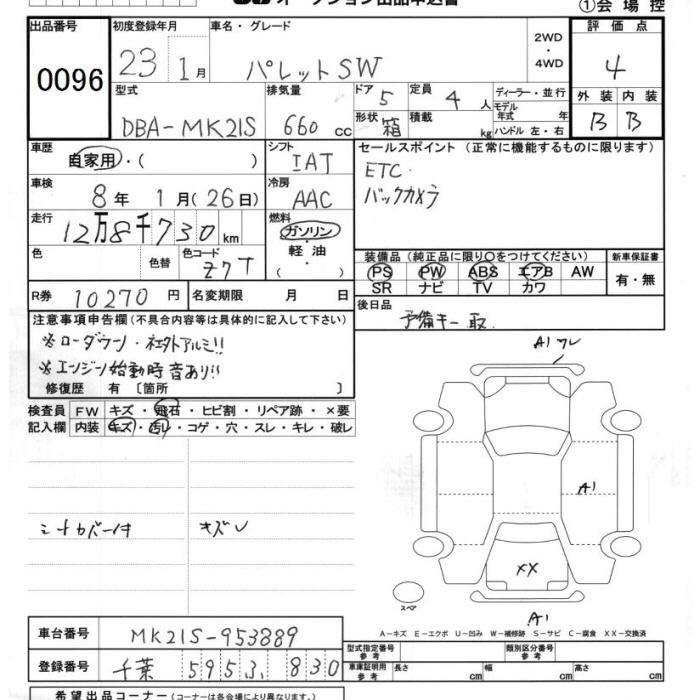 オークション出品申込書
①会場控
出品番号 初度登録年月 車名・グレード 評価点
0096 23 1月 パレットSW 2WD・4WD 4
型式 排気量 ドア 5 定員 4人 ディーラー・並行 外装 内装
モデル年式 年
DBA-MK21S 660 cc 形状 箱 積載 kg ハンドル 左・右 B B
車歴 シフト セールスポイント(正常に機能するものに限ります)
自家用・( ) IAT ETC・
車検 冷房 バックカメラ
8年 1月(26日) AAC
走行 燃料
12万8千730km ガソリン・軽油・( )
色 色替 色コード Z7T 装備品(純正品に限り○をつけてください) 新車保証書
PS PW ABS エアB AW 有・無
SR ナビ TV カワ
R券 10270円 名変期限 月 日 後日品
注意事項申告欄(不具合内容等は具体的に記入して下さい) 予備キー 取
※ローダウン・社外アルミ!!
※エンジン始動時音あり!!
修復歴 有〔箇所 〕
検査員 FW キズ・飛石・ヒビ割・リペア跡・×要
記入欄 内装 キズ・汚レ・コゲ・穴・スレ・キレ・破レ
A1 ワレ
A1
キズレ
XX
スペア
A1
A-キズ E-エクボ U-凹み W-補修跡 S-サビ C-腐食 XX-交換済
車台番号 MK21S-953889 型式指定番号 参考 類別区分番号 参考
登録番号 千葉 595 ふ 830 車庫証明用 参考 長さ cm 幅 cm 高さ cm
希望出品コーナー(コーナーは各会場により異なります。)